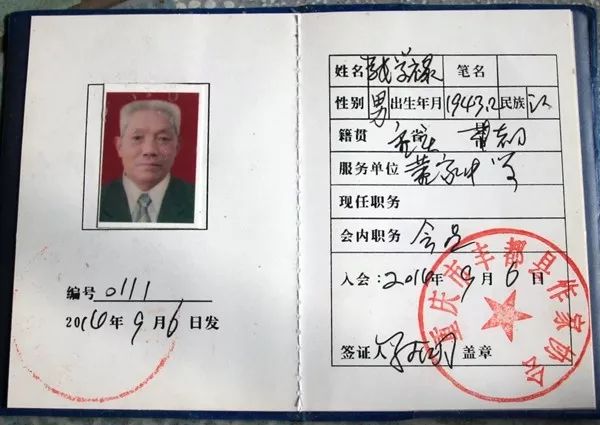 编号 0111
2016年9月6日发
姓名 学禄 笔名
性别 男 出生年月 1943.12 民族 汉
籍贯 省
服务单位 董家中学
现任职务
会内职务 会员
入会:2016年9月6日
签证人 盖章
重庆市丰都县作家协会